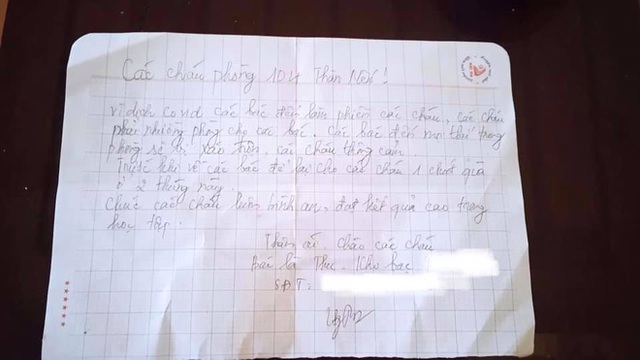 Các cháu phòng 104 Thân Mến!
Vì dịch Covid các bác đến làm phiền các cháu, các cháu
phải nhường phòng cho các bác. Các bác đến mọi thứ trong
phòng sẽ bị xáo trộn, các cháu thông cảm.
Trước khi về các bác để lại cho các cháu 1 chút quà
ở 2 thùng này.
Chúc các cháu luôn bình an, đạt kết quả cao trong
học tập.
Thân ái. Chào các cháu
Bác là Thu - Kho bạc
SĐT: